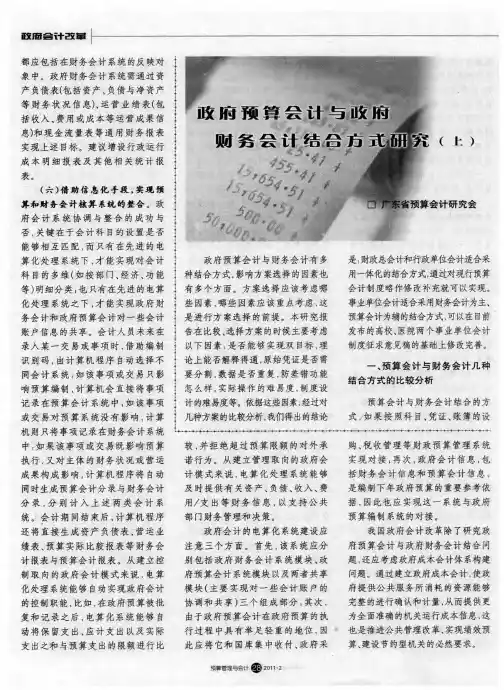 政府会计改革
都应包括在财务会计系统的反映对
象中。政府财务会计系统需通过资
产负债表(包括资产、负债与净资产
等财务状况信息)、运营业绩表(包
括收入、费用或成本等运营成果信
息)和现金流量表等通用财务报表
实现上述目标。建议增设行政运行
成本明细报表及其他相关统计报
表。
(六)借助信息化手段,实现预
算和财务会计核算系统的整合。政
府会计系统协调与整合的成功与
否,关键在于会计科目的设置是否
能够相互匹配,而只有在先进的电
算化处理系统下,才能实现对会计
科目的多维(如按部门、经济、功能
等)明细分类,也只有在先进的电算
化处理系统之下,才能实现政府财
务会计和政府预算会计对一些会计
账户信息的共享。会计人员未来在
录入某一交易或事项时,借助编制
识别码,由计算机程序自动选择不
同会计系统,如该事项或交易只影
响预算编制,计算机会直接将事项
记录在预算会计系统中,如该事项
或交易对预算系统没有影响,计算
机则只将事项记录在财务会计系统
中,如果该事项或交易既影响预算
执行,又对主体的财务状况或营运
成果构成影响,计算机程序将自动
同时生成预算会计分录与财务会计
分录,分别计入上述两类会计系
统。会计期间结束后,计算机程序
还将直接生成资产负债表、营运业
绩表、预算实际比较报表等财务会
计报表与预算会计报表。从建立控
制取向的政府会计模式来说,电算
化处理系统能够自动实现政府会计
的控制职能,比如,在政府预算被批
复和记录之后,电算化系统能够自
动将保留支出、应计支出以及实际
支出之和与预算支出的限额进行比
政府预算会计与政府
财务会计结合方式研究(上)
455·41
455·41
15,654·51
15,654·51
500·00
□ 广东省预算会计研究会
政府预算会计与财务会计有多
种结合方式,影响方案选择的因素也
有多个方面。方案选择应该考虑哪
些因素,哪些因素应该重点考虑,这
是进行方案选择的前提。本研究报
告在比较、选择方案的时候主要考虑
以下因素:是否能够实现双目标,理
论上能否解释得通,原始凭证是否需
要分割,数据是否重复,防差错功能
怎么样,实际操作的难易度,制度设
计的难易度等。依据这些因素,经过对
几种方案的比较分析,我们得出的结论
是:财政总会计和行政单位会计适合采
用一体化的结合方式,通过对现行预算
会计制度略作修改补充就可以实现。
事业单位会计适合采用财务会计为主、
预算会计为辅的结合方式,可以在目前
发布的高校、医院两个事业单位会计
制度征求意见稿的基础上修改完善。
一、预算会计与财务会计几种
结合方式的比较分析
预算会计与财务会计结合的方
式,如果按照科目、凭证、账簿的设
较,并拒绝超过预算限额的对外承
诺行为。从建立管理取向的政府会
计模式来说,电算化处理系统能够
及时提供有关资产、负债、收入、费
用/支出等财务信息,以支持公共
部门财务管理和决策。
政府会计的电算化系统建设应
注意三个方面。首先,该系统应分
别包括政府财务会计系统模块、政
府预算会计系统模块以及两者共享
模块(主要实现对一些会计账户的
协调和共享)三个组成部分,其次,
由于政府预算会计在政府预算的执
行过程中具有举足轻重的地位,因
此应将它和国库集中收付、政府采
购、税收管理等财政预算管理系统
实现对接,再次,政府会计信息,包
括财务会计信息和预算会计信息,
是编制下年政府预算的重要参考依
据,因此也应实现这一系统与政府
预算编制系统的对接。
我国政府会计改革除了研究政
府预算会计与政府财务会计结合问
题,还应考虑政府成本会计体系构建
问题。通过建立政府成本会计,使政
府提供公共服务所消耗的资源能够
完整的进行确认和计量,从而提供更
为全面准确的机关运行成本信息,这
也是推进公共管理改革、实现绩效预
算、建设节约型机关的必然要求。
预算管理与会计 28 2011·2